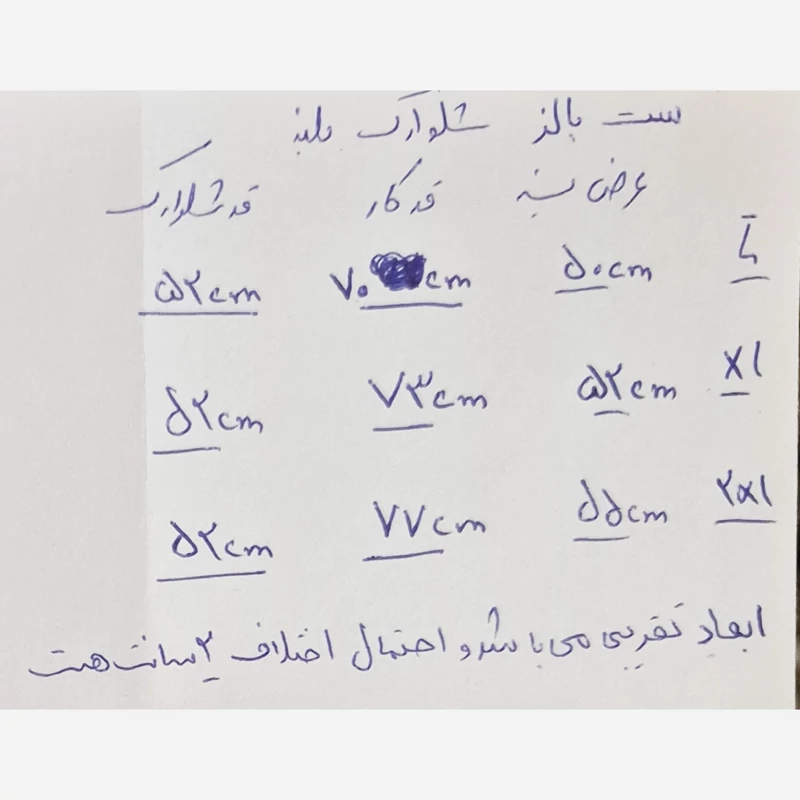 ست بالنز شلوارک بلند
عرض سینه قد کار قد شلوارک
L ۵۰cm ۷۰cm ۵۲cm
XL ۵۲cm ۷۳cm ۵۲cm
۲XL ۵۵cm ۷۷cm ۵۲cm
ابعاد تقریبی می باشد و احتمال اختلاف ۲ سانت هست